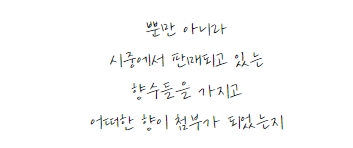 뿐만 아니라
시중에서 판매되고 있는
향수들을 가지고
어떠한 향이 첨부가 되었는지